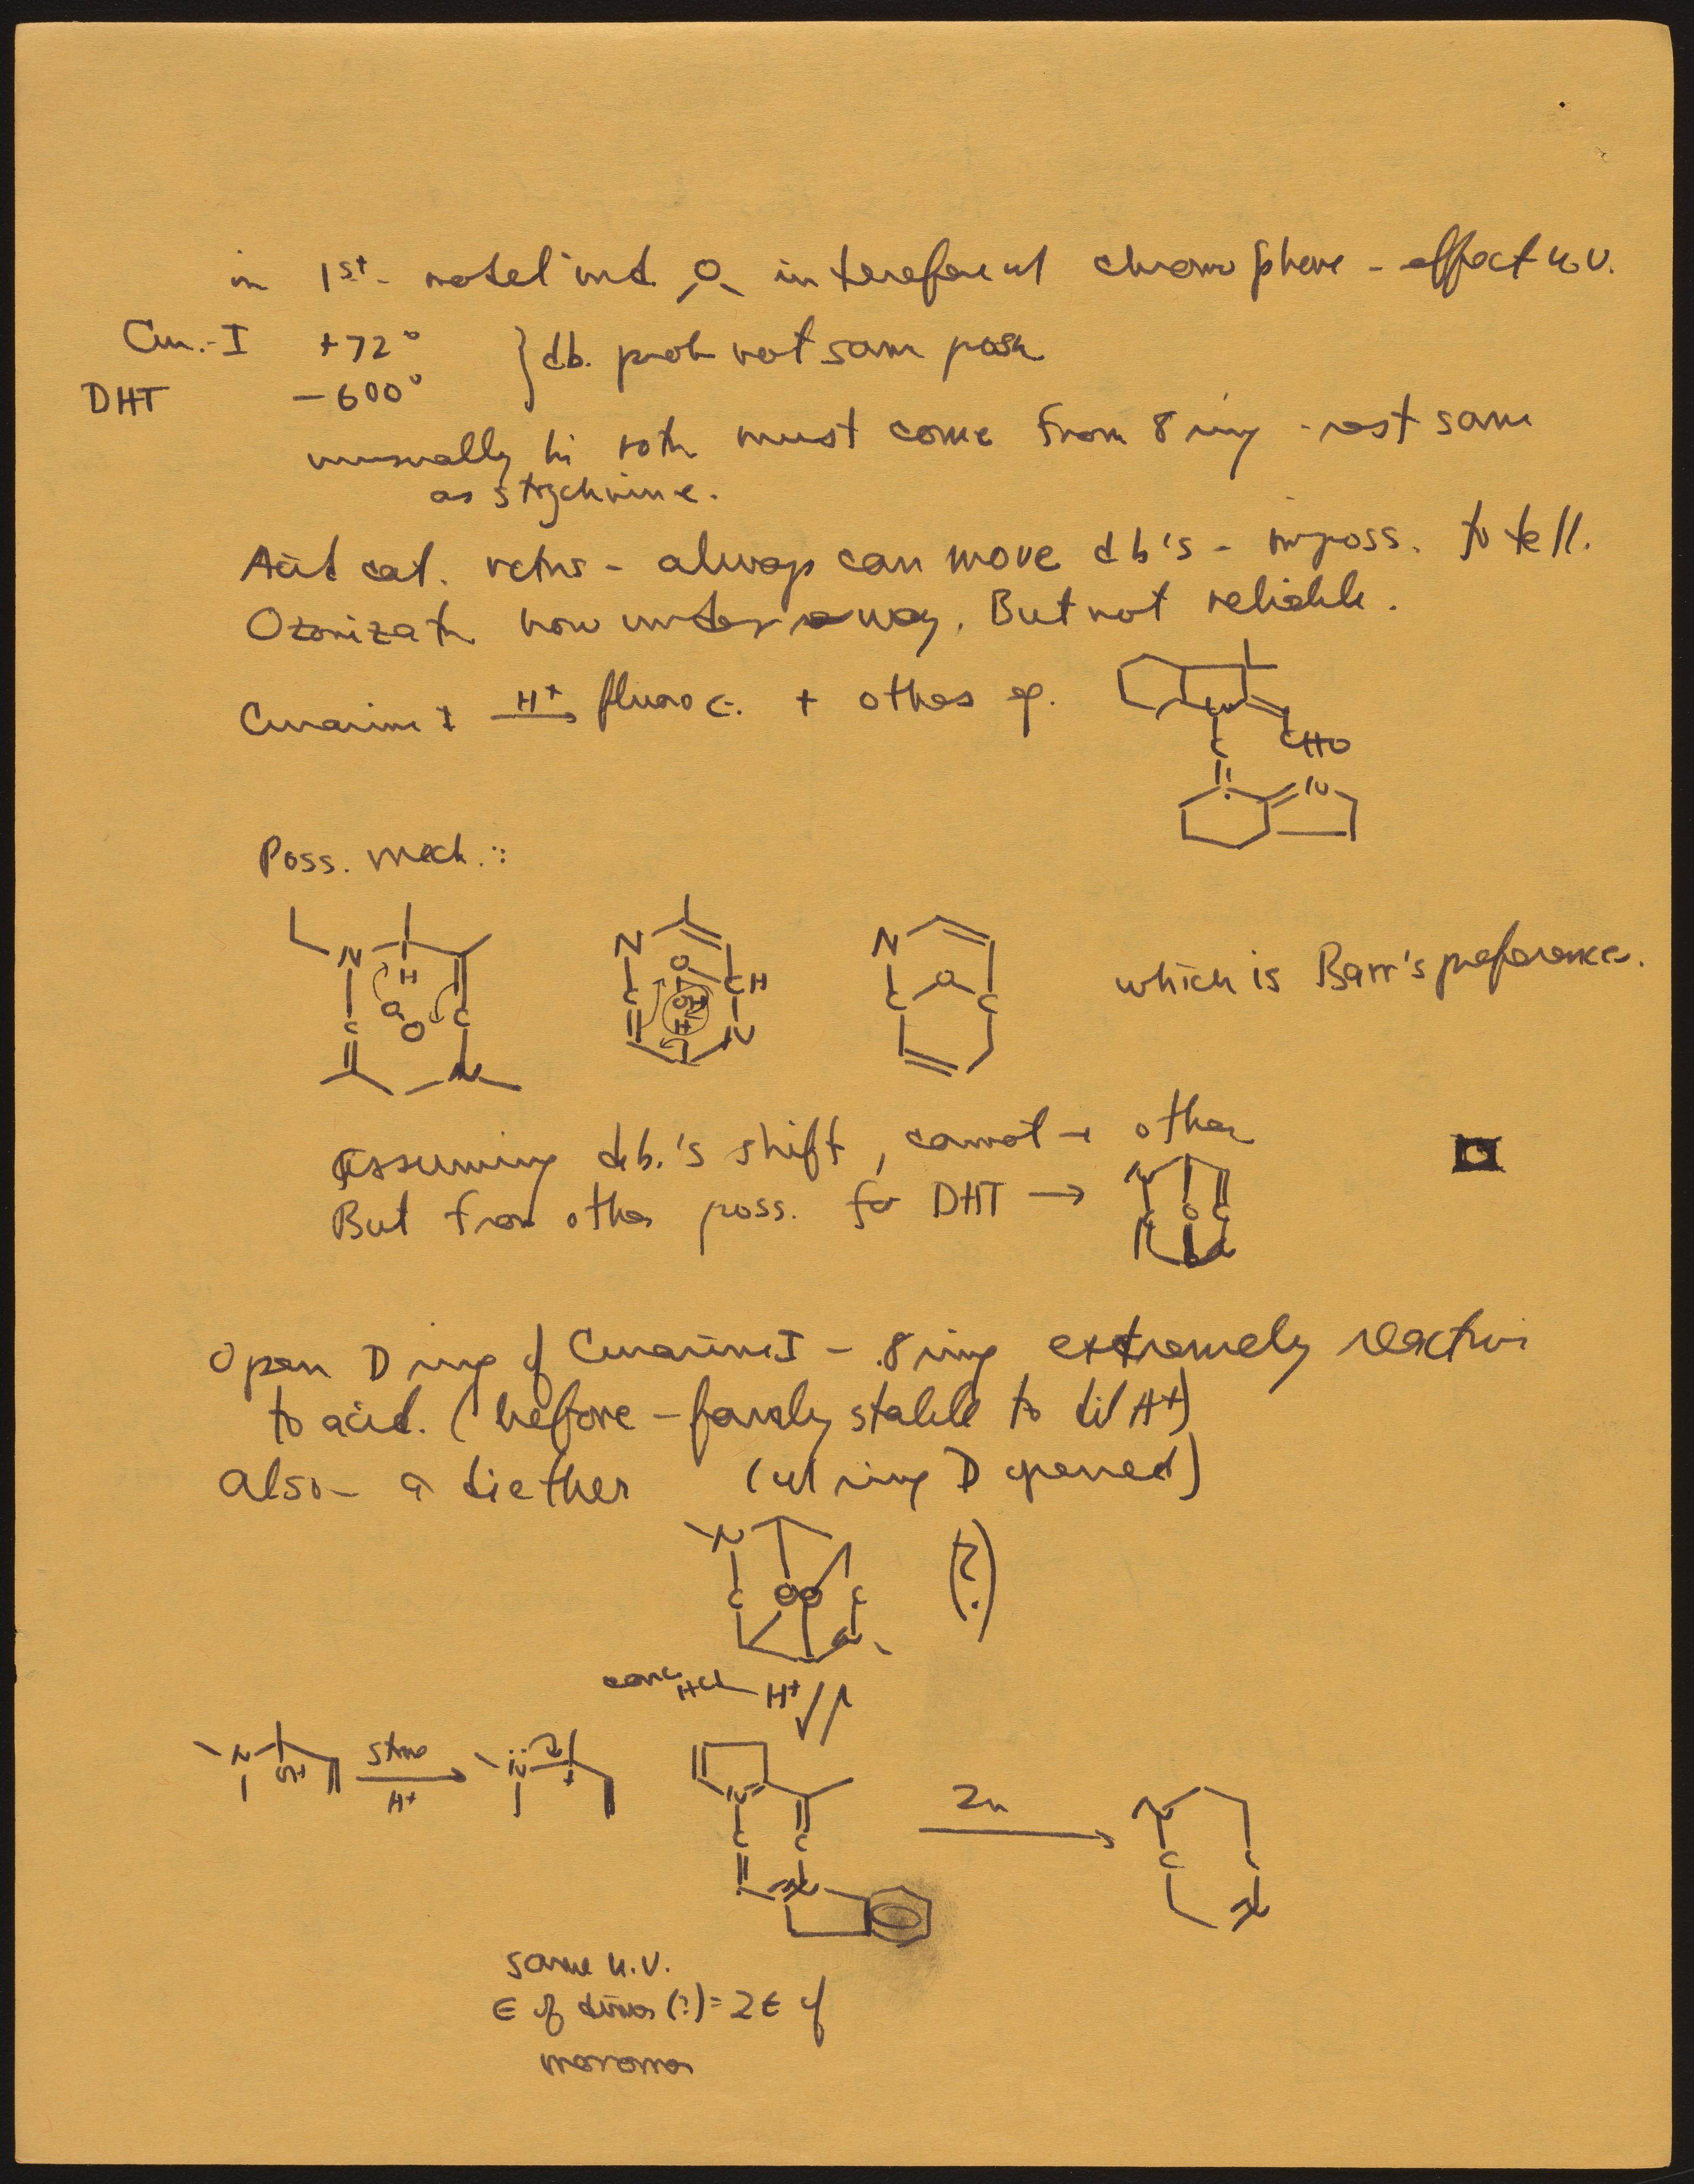 in 1st model ind. O interefere w/ chromophore - effect u.v.
Cur.-I +72° } db. prob not same posn
DHT -600°
unusually hi rotn must come from 8 ring - rest same
as strychnine.
Acid cat. rctns - always can move db's - imposs. to tell.
Ozonizatn now under way. But not reliable.
Curarine I H+ → fluoro c. + other cp.
N
C CHO
N
Poss. mech.:
N H C O O C N
N O C H C N
N O C C
which is Barr's preference.
Assuming d.b.'s shift, cannot → other
But from other poss. for DHT →
N O C C
Open D ring of Curarine I - 8 ring extremely reactive
to acid. (before - fairly stable to dil H+)
Also - a diether (w/ ring D opened)
N C O O C (?)
conc HCl H+
N OH strong H+ → N +
N C C N
Zn →
N C C N
same u.v.
ε of dimer (?) = 2ε of
monomer